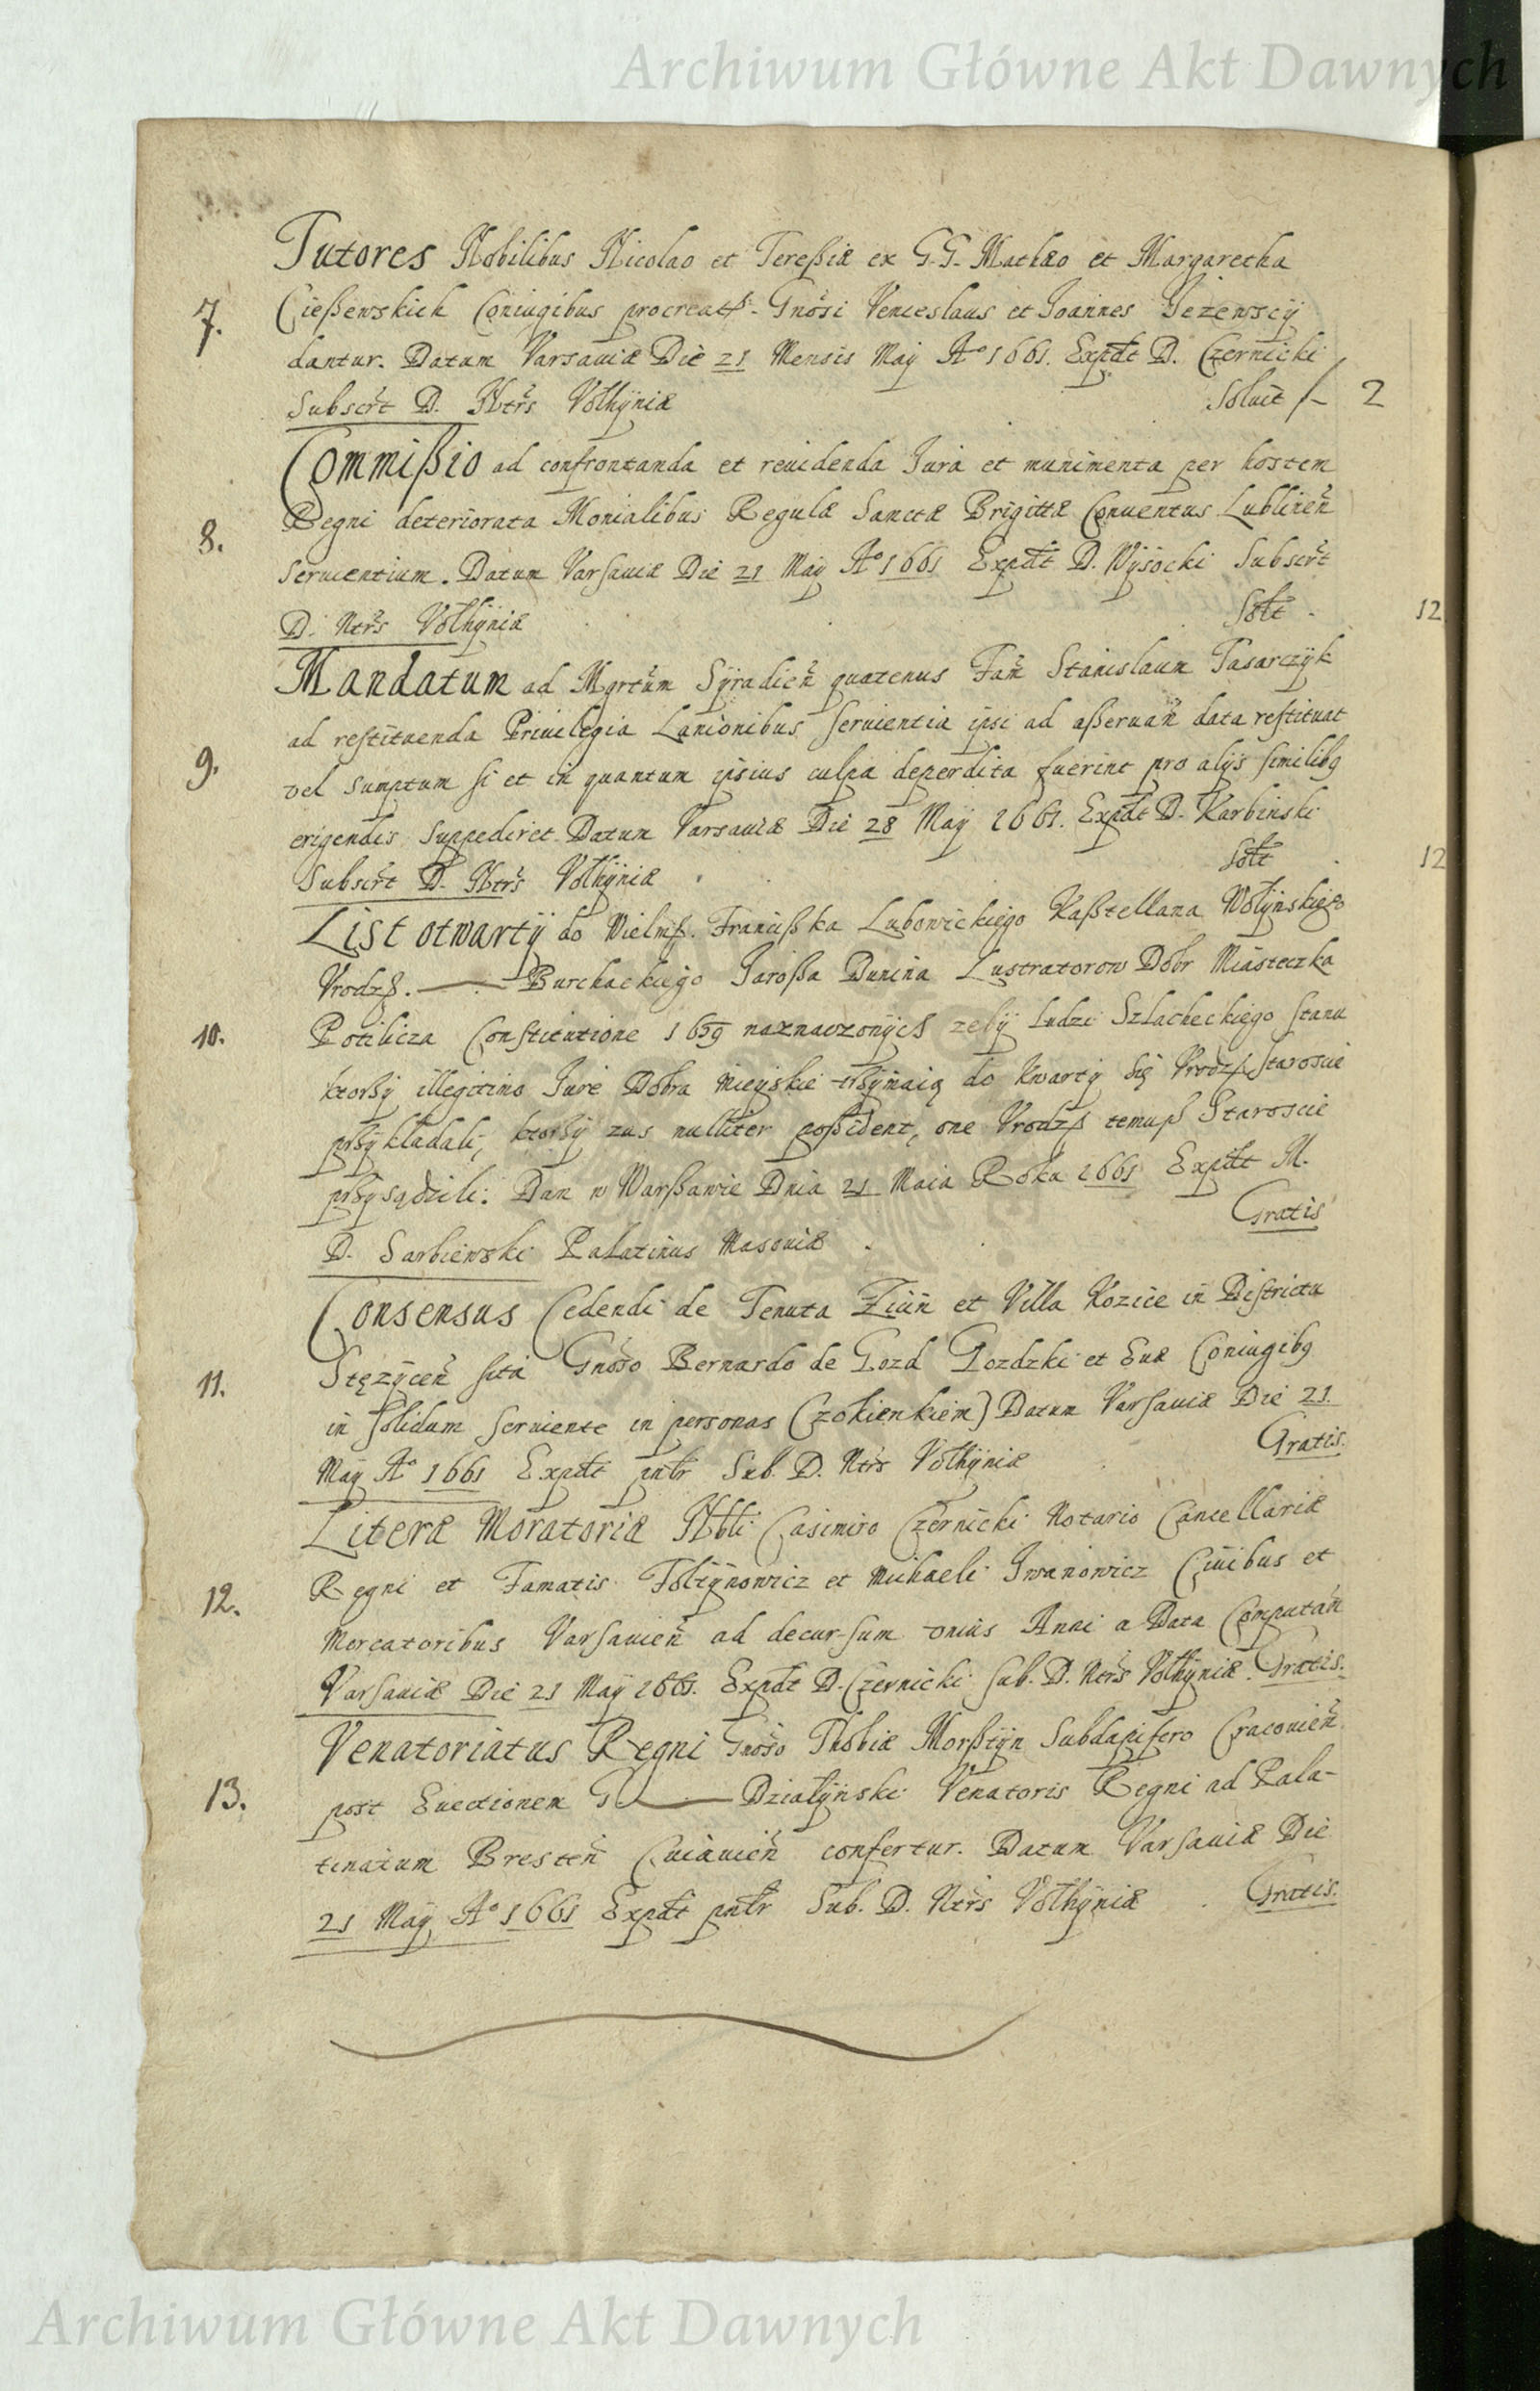 Archiwum Główne Akt Dawnych
Tutores Nobilibus Nicolao et Tereßiæ ex G. G. Mathæo et Margaretha
7. Cießewskich Coniugibus procreatß. Gnosi Venceslaus et Joannes Jezewscÿ
dantur. Datum Varsauiæ Die 21 Mensis Maÿ Aº 1661. Expdt D. Czernicki
Subscrt D. Ntrs Volhÿniæ Soluit f 2
Commißio ad confrontanda et reuidenda Jura et munimenta per hostem
8. Regni deteriorata Monialibus Regulæ Sanctæ Brigittæ Conuentus Lublinen̄
seruientium. Datum Varsauiæ Die 21 Maÿ Aº 1661 Expdt D. Wÿsocki Subscrt
D. Ntrs Volhÿniæ Solt . 12
Mandatum ad Mgrtum Sÿradien̄ quatenus Fam̄ Stanislaum Tasarczÿk
ad restituenda Priuilegia Lanionibus seruientia ipsi ad aßeruan̄ data restituat
9. vel sumptum si et in quantum ipsius culpa deperdita fuerint pro alÿs similibg
erigendis suppeditet Datum Varsauiæ Die 28 Maÿ 1661. Expdt D. Karbinski
Subscrt D. Ntrs Volhÿniæ Solt . 12
List otwartÿ do Wielmß. Francißka Lubowickiego Kaßtellana Wolÿnskiego
Vrodzß. — Burchackiego Jaroßa Dunina Lustratorow Dobr Miasteczka
10. Potilicza Constitutione 1659 naznaczonÿch zebÿ ludzi Szlacheckiego stanu
ktorßÿ illegitimo Jure Dobra mieyskie trßÿmaią do kwartÿ się Vrodzß staroscie
prßÿkladali, ktorßÿ zas nulliter poßident, one Vrodzß temuß Staroscie
prßÿsądzili. Dan w Warßawie Dnia 21 Maia Roku 1661 Expdt M.
D. Sarbiewski Palatinus Masouiæ . Gratis
Consensus Cedendi de Tenuta et Villa Kozice in Districtu
11. Stęzÿcen̄ sita Gnoso Bernardo de Gozd Gozdzki et Euæ Coniugibg
in solidum seruiente in personas (z okienkiem) Datum Varsauiæ Die 21.
Maÿ Aº 1661 Expdt pntr Sub. D. Ntrs Volhÿniæ Gratis.
Literæ Moratoriæ Nbli Casimiro Czernicki Notario Cancellariæ
12. Regni et Famatis Foltÿnowicz et Michaeli Iwanowicz Ciuibus et
Mercatoribus Varsauien̄ ad decursum vnius Anni a Data Computan̄
Varsauiæ Die 21 Maÿ 1661. Expdt D. Czernicki Sub. D. Ntrs Volhÿniæ. Gratis.
Venatoriatus Regni Gnoso Thobiæ Morßtÿn Subdapifero Cracouien̄
13. post Euectionem G. — Dzialÿnski Venatoris Regni ad Pala-
tinatum Bresten̄ Cuiauien̄ confertur. Datum Varsauiæ Die
21 Maÿ Aº 1661 Expdt pntr Sub. D. Ntrs Volhÿniæ . Gratis.
Archiwum Główne Akt Dawnych